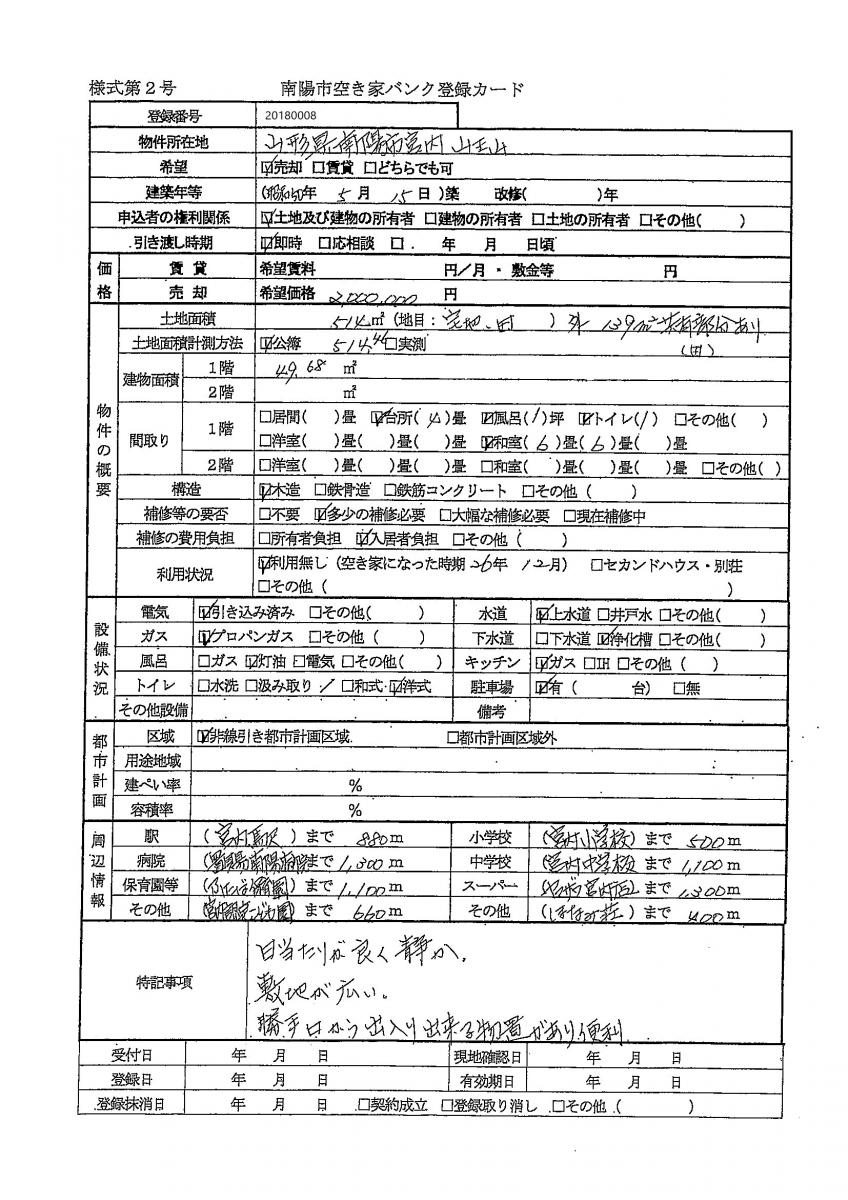 様式第2号 南陽市空き家バンク登録カード
登録番号 20180008
物件所在地 山形県南陽市宮内
希望 ☑売却 □賃貸 □どちらでも可
建築年等 (昭和50年 5月 15日)築 改修( )年
申込者の権利関係 ☑土地及び建物の所有者 □建物の所有者 □土地の所有者 □その他( )
引き渡し時期 ☑即時 □応相談 □. 年 月 日頃
価格 賃貸 希望賃料 円/月・敷金等 円
売却 希望価格 2,000,000 円
物件の概要 土地面積 514㎡(地目:宅地、田 )外 139㎡共有部分あり
(田)
土地面積計測方法 ☑公簿 514.44 □実測
建物面積 1階 49.68 ㎡
2階 ㎡
間取り 1階 □居間( )畳 ☑台所(4)畳 ☑風呂(1)坪 ☑トイレ(1) □その他( )
□洋室( )畳( )畳( )畳 ☑和室(6)畳(6)畳( )畳
2階 □洋室( )畳( )畳( )畳 □和室( )畳( )畳( )畳 □その他( )
構造 ☑木造 □鉄骨造 □鉄筋コンクリート □その他( )
補修等の要否 □不要 ☑多少の補修必要 □大幅な補修必要 □現在補修中
補修の費用負担 □所有者負担 ☑入居者負担 □その他( )
利用状況 ☑利用無し(空き家になった時期26年 12月) □セカンドハウス・別荘
□その他( )
設備状況 電気 ☑引き込み済み □その他( ) 水道 ☑上水道 □井戸水 □その他( )
ガス ☑プロパンガス □その他( ) 下水道 □下水道 ☑浄化槽 □その他( )
風呂 □ガス ☑灯油 □電気 □その他( ) キッチン ☑ガス □IH □その他( )
トイレ □水洗 □汲み取り / □和式・☑洋式 駐車場 ☑有( 台) □無
その他設備 備考
都市計画 区域 ☑非線引き都市計画区域 □都市計画区域外
用途地域
建ぺい率 %
容積率 %
周辺情報 駅 (宮内駅)まで 880m 小学校 (宮内小学校)まで 500m
病院 まで 1,300m 中学校 (宮内中学校)まで 1,100m
保育園等 まで 1,100m スーパー まで 1,300m
その他 まで 660m その他 まで 400m
特記事項 日当たりが良く静か。
敷地が広い。
勝手口から出入り出来る物置があり便利
受付日 年 月 日 現地確認日 年 月 日
登録日 年 月 日 有効期日 年 月 日
登録抹消日 年 月 日 □契約成立 □登録取り消し □その他( )